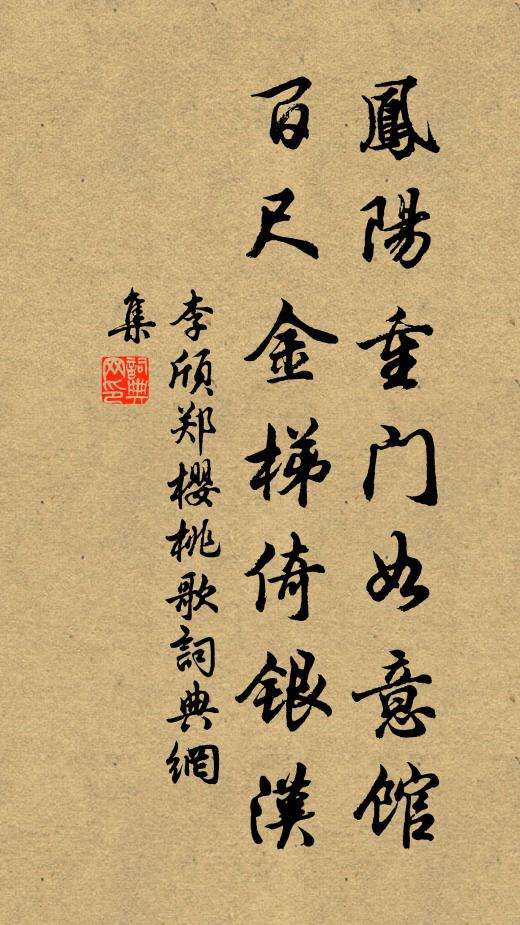 鳳陽重门如意館
百尺金梯倚银漢
李頎郑櫻桃歌詞典網
集
詞典
网印